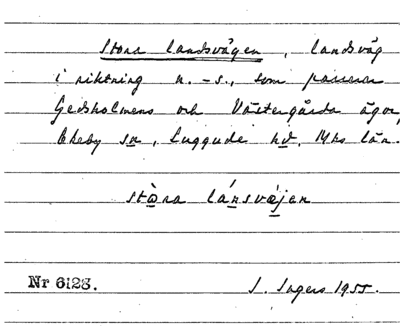 Stora landsvägen, landsväg
i riktning n. - s., som passerar
Gedsholmens och Västergårda ägor,
Ekeby sn, Luggude hd, Mhs län.
stòra lánsvæjen
Nr 6123.
S. Ingers 1955.